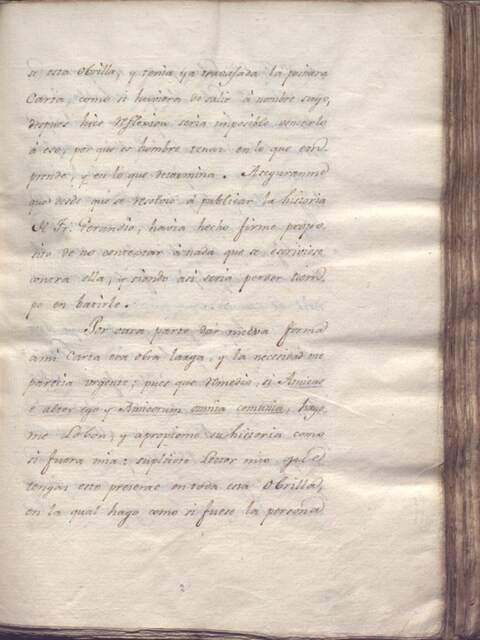 se esta Obrilla, y tenia ya trabajada la primera
Carta, como si huviera de salir á nombre suyo,
despues hice reflexion seria imposible vencerlo
á eso, por que es hombre tenaz en lo que em-
prende, y en lo que determina. Aseguranme
que desde que se resolvió á publicar la historia
de Fr. Gerundio, havia hecho firme propo-
sito de no contextar á nada que se escriviese
contra ella, y siendo asi seria perder tiem-
po en batirle.
Por otra parte dar nueva forma
ami Carta era obra larga, y la necesidad me
parecia urgente; pues que remedio, si Amicus
é alter ego y Amicorum omnia comunia, hago
me Lobon, y apropiome su historia como
si fuera mia: suplicote Lector mio que
tengas esto presente en toda esta Obrilla,
en la qual hago como si fuese la persona
2